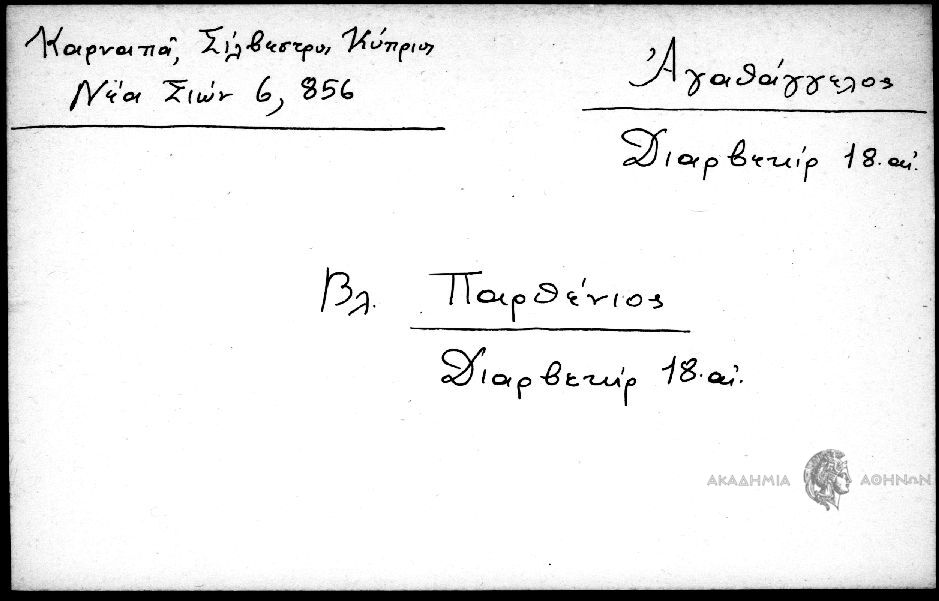 Καρναπᾶ, Σίλβεστρος Κύπριος
Νέα Σιών 6, 856
Ἀγαθάγγελος
Διαρβεκίρ 18. αἰ.
Βλ. Παρθένιος
Διαρβεκίρ 18. αἰ.
ΑΚΑΔΗΜΙΑ ΑΘΗΝΩΝ